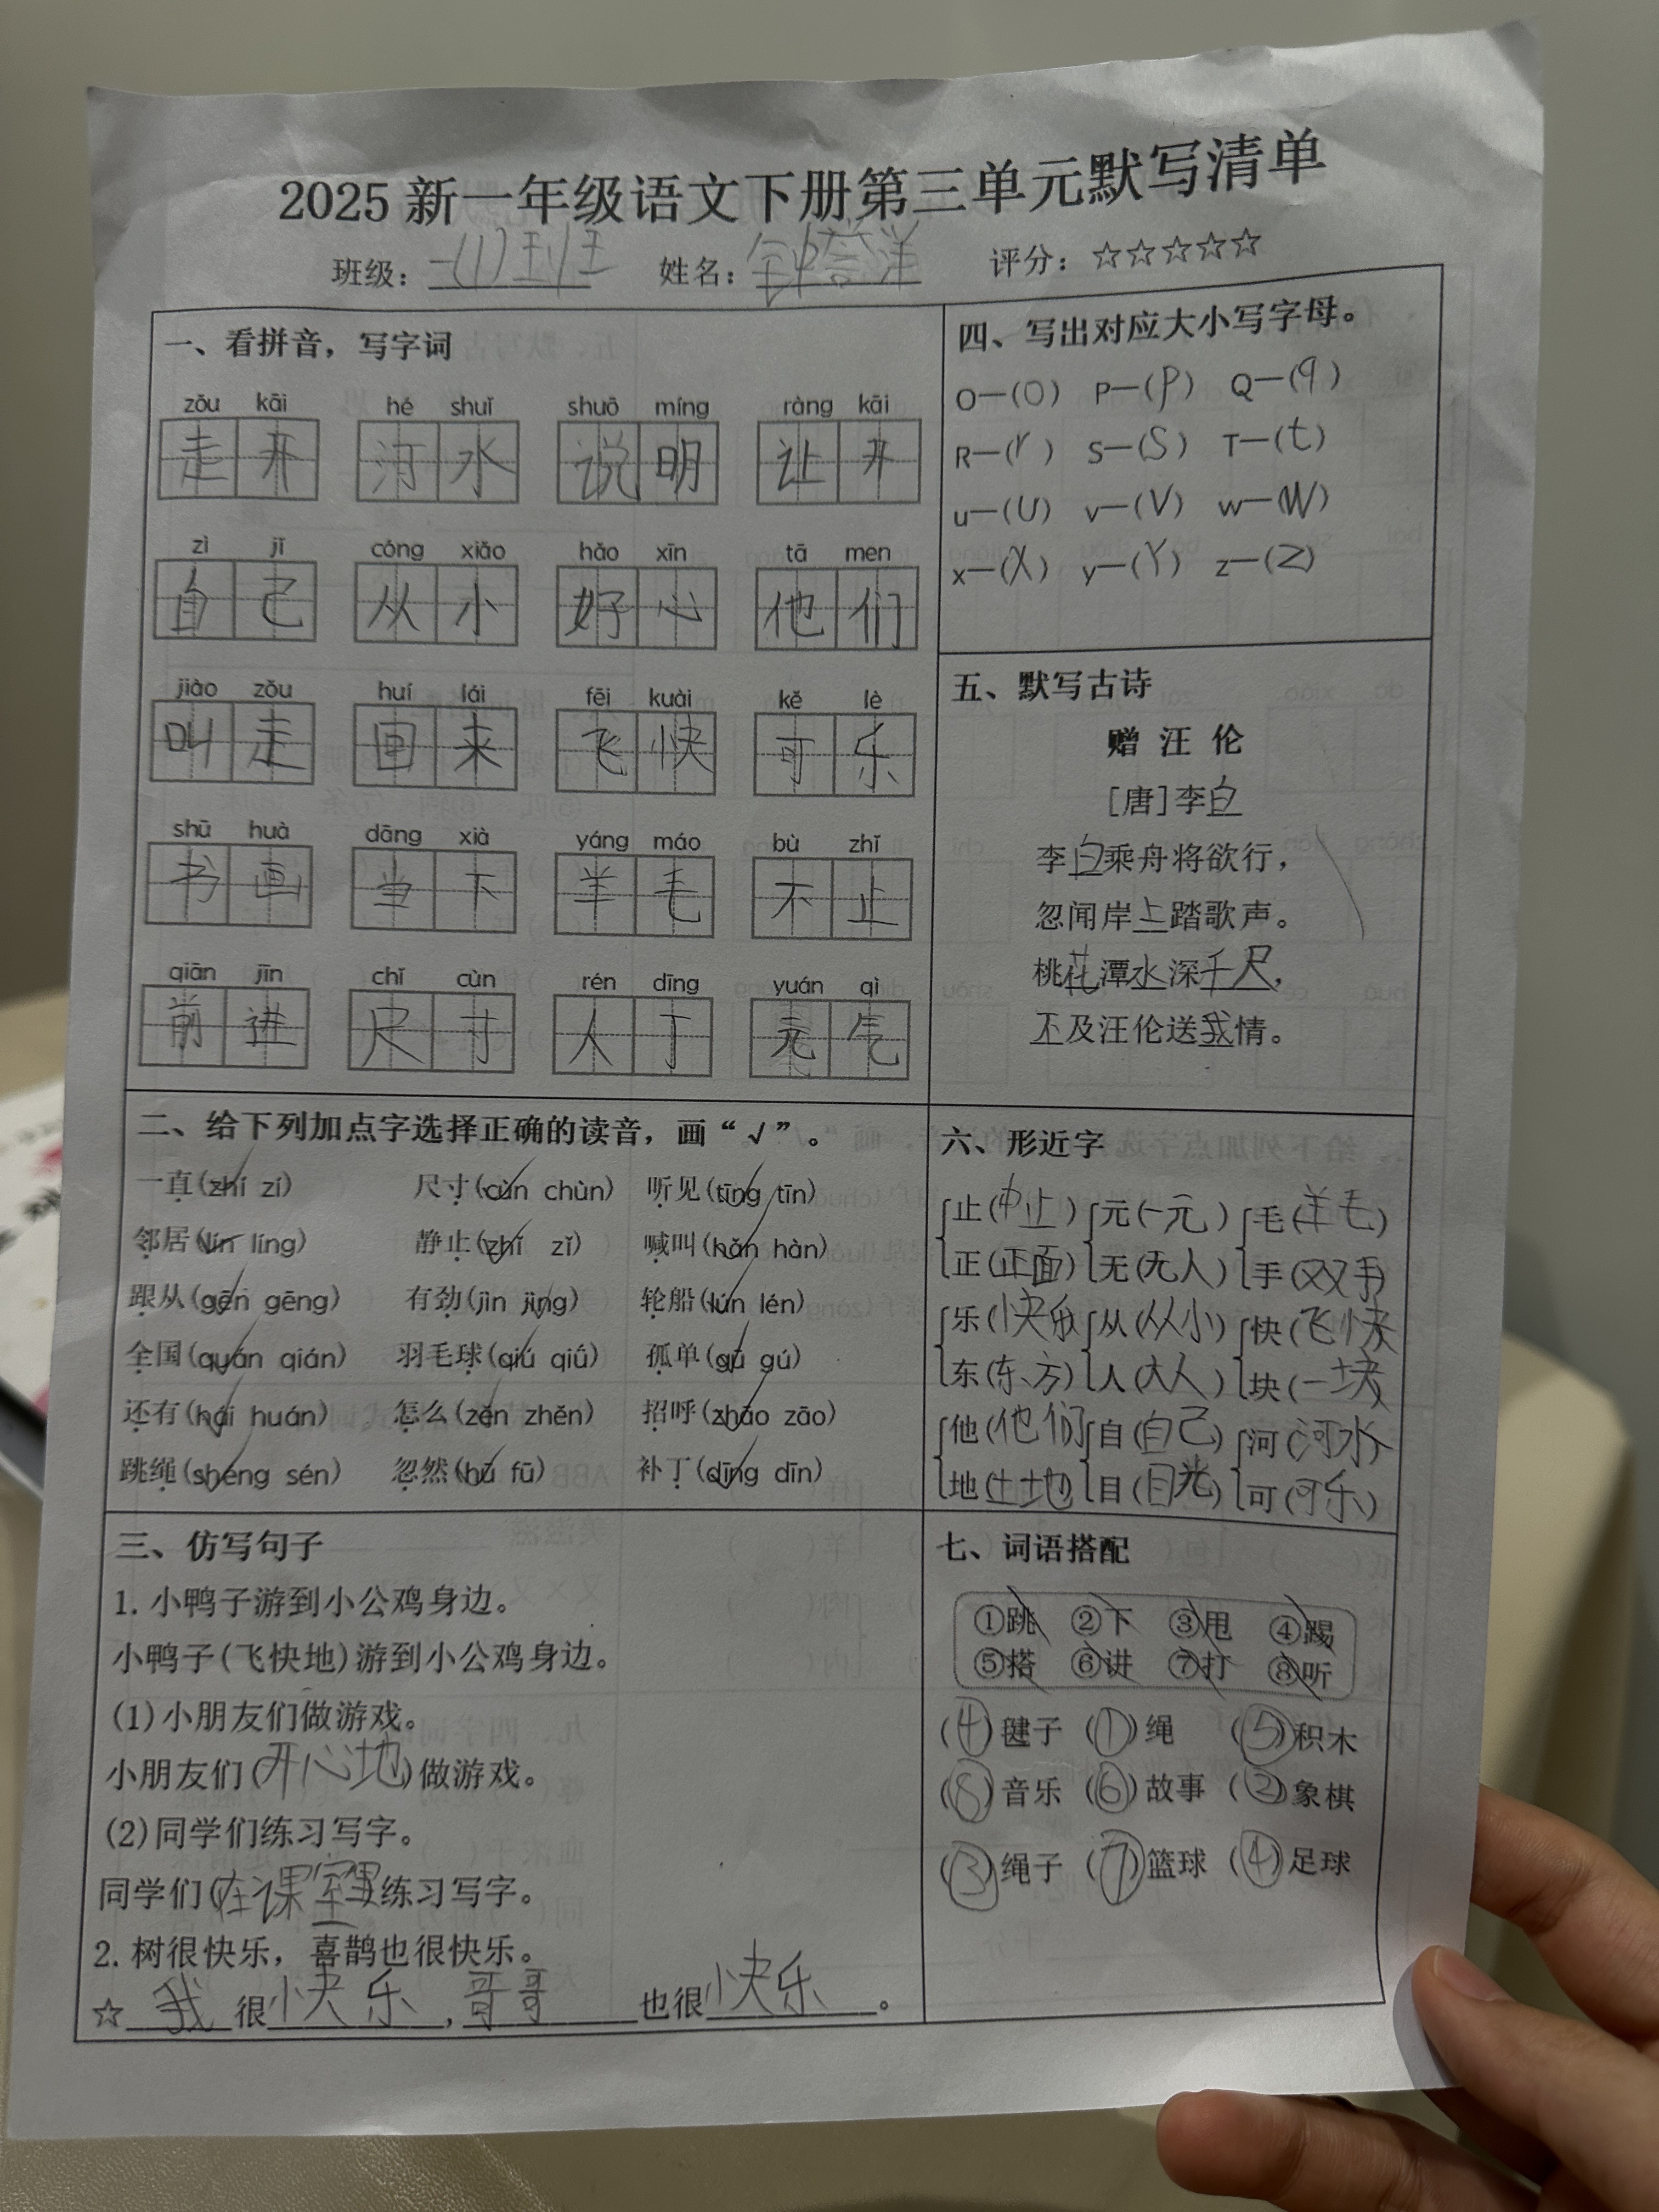 2025新一年级语文下册第三单元默写清单
班级：一(1)班 姓名：钟誉洋 评分：☆☆☆☆☆
一、看拼音，写字词
zǒu kāi hé shuǐ shuō míng ràng kāi
走开 河水 说明 让开
zì jǐ cóng xiǎo hǎo xīn tā men
自己 从小 好心 他们
jiào zǒu huí lái fēi kuài kě lè
叫走 回来 飞快 可乐
shū huà dāng xià yáng máo bù zhǐ
书画 当下 羊毛 不止
qián jìn chǐ cùn rén dīng yuán qì
前进 尺寸 人丁 元气
二、给下列加点字选择正确的读音，画“√”。
一直(zhí zí) 尺寸(cùn chùn) 听见(tīng tīn)
邻居(lín líng) 静止(zhǐ zǐ) 喊叫(hǎn hàn)
跟从(gēn gēng) 有劲(jìn jìng) 轮船(lún lén)
全国(quán qián) 羽毛球(qiú qiǘ) 孤单(gū gú)
还有(hái huán) 怎么(zěn zhěn) 招呼(zhāo zāo)
跳绳(shéng sén) 忽然(hū fū) 补丁(dīng dīn)
三、仿写句子
1. 小鸭子游到小公鸡身边。
小鸭子(飞快地)游到小公鸡身边。
(1)小朋友们做游戏。
小朋友们(开心地)做游戏。
(2)同学们练习写字。
同学们(在课室里)练习写字。
2. 树很快乐，喜鹊也很快乐。
☆我很快乐，哥哥也很快乐。
四、写出对应大小写字母。
O—(o) P—(p) Q—(q)
R—(r) S—(s) T—(t)
u—(U) v—(V) w—(W)
x—(X) y—(Y) z—(Z)
五、默写古诗
赠汪伦
[唐]李白
李白乘舟将欲行，
忽闻岸上踏歌声。
桃花潭水深千尺，
不及汪伦送我情。
六、形近字
止(中止) 元(一元) 毛(羊毛)
正(正面) 无(无人) 手(双手)
乐(快乐) 从(从小) 快(飞快)
东(东方) 人(大人) 块(一块)
他(他们) 自(自己) 河(河水)
地(土地) 目(目光) 可(可乐)
七、词语搭配
①跳 ②下 ③甩 ④踢
⑤搭 ⑥讲 ⑦打 ⑧听
(④)毽子 (①)绳 (⑤)积木
(⑧)音乐 (⑥)故事 (②)象棋
(③)绳子 (⑦)篮球 (④)足球